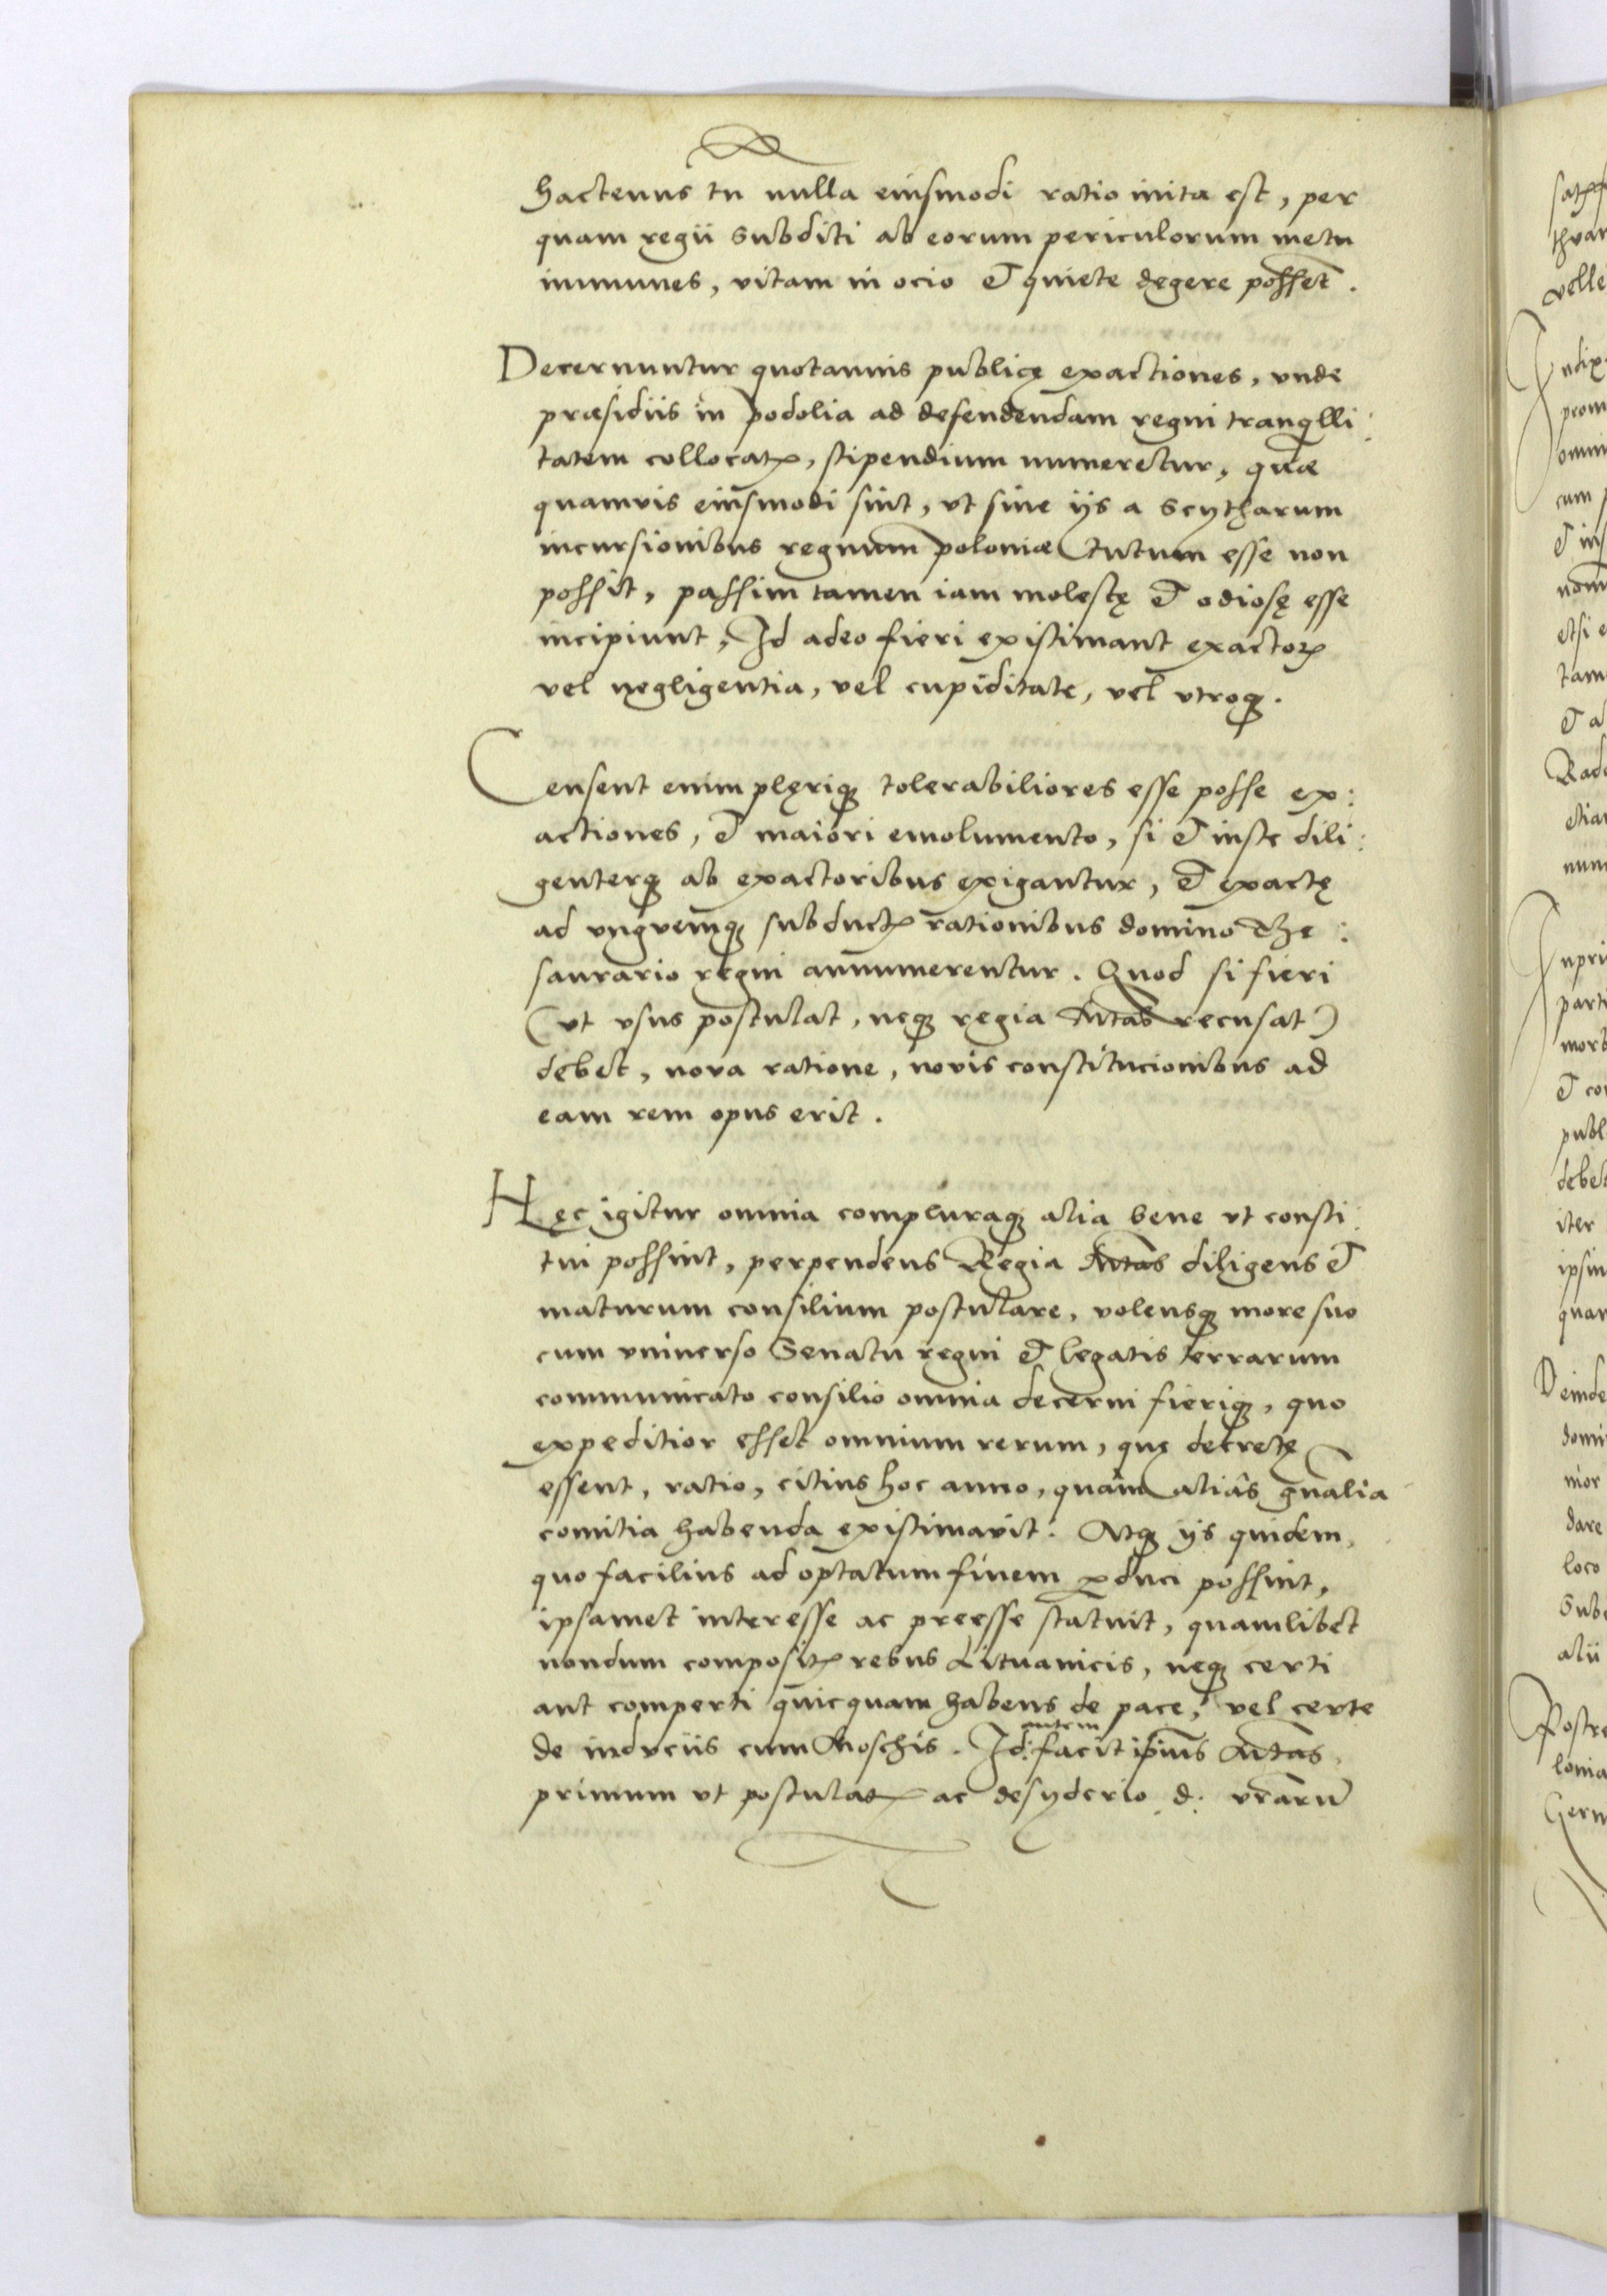 hactenus tn nulla eiusmodi ratio inita est, per
quam regii subditi ab eorum periculorum metu
immunes, vitam in ocio et quiete degere possēt.
Decernuntur quotannis publicę exactiones, vnde
præsidiis in Podolia ad defendendam regni tranqlli:
tatem collocatꝭ, stipendium numeretur, quæ
quamvis eiusmodi sint, vt sine ijs a Scytharum
incursionibus regnum Poloniæ tutum esse non
possit, passim tamen iam molestę et odiosę esse
incipiunt, Id adeo fieri existimant exactoꝝ
vel negligentia, vel cupiditate, vel vtroqꝫ.
Censent enim plęriqꝫ tolerabiliores esse posse ex:
actiones, et maiori emolumento, si et iuste dili:
genterqꝫ ab exactoribus exigantur, et exactę
ad vnguemqꝫ subductꝭ rationibus domino The:
saurario regni annumerentur. Quod si fieri
(vt vsus postulat, neqꝫ regia Mtas recusat)
debet, nova ratione, novis constitucionibus ad
eam rem opus erit.
Hęc igitur omnia compluraqꝫ alia bene vt consti:
tui possint, perpendens Regia Mtas diligens et
maturum consilium postulare, volensqꝫ more suo
cum vniuerso Senatu regni et legatis terrarum
communicato consilio omnia decerni fieriqꝫ, quo
expeditior esset omnium rerum, quę decretę
essent, ratio, citius hoc anno, quàm aliàs gnalia
comitia habenda existimavit. Atqꝫ ijs quidem,
quo facilius ad optatum finem ꝑduci possint,
ipsamet interesse ac preesse statuit, quamlibet
nondum compositꝭ rebus Lituanicis, neqꝫ certi
aut comperti quicquam habens de pace, vel certe
de induciis cum Moschis. Id autem facit ipsius Mtas
primum vt postulatꝭ ac desyderio d. vrarū